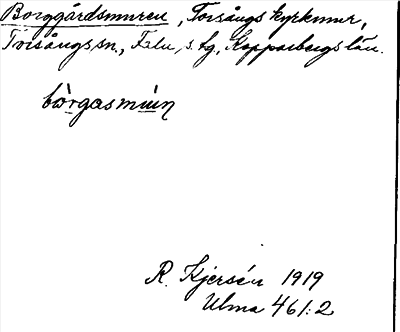 Borggårdsmuren, Torsångs kyrkmur,
Torsångs sn., Falu s. tg, Kopparbergs län.
bòrgasmùun
R. Kjersén 1919
Ulma 461:2